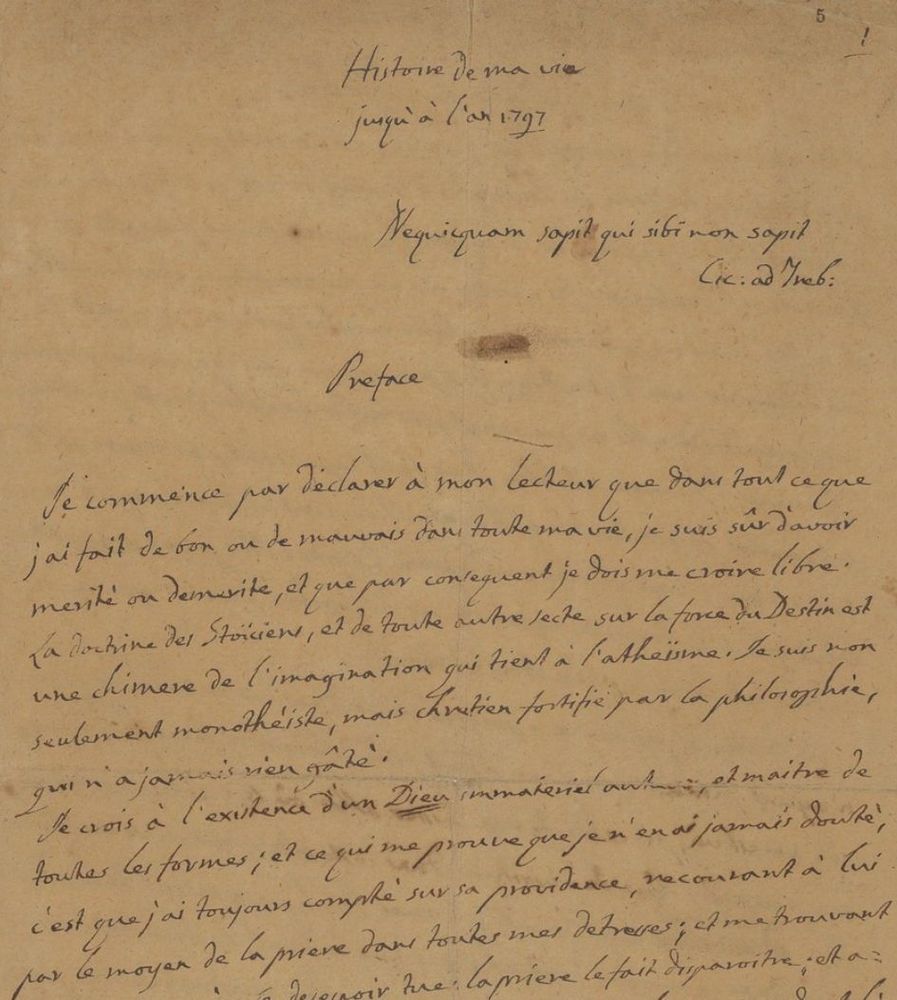 5
1
Histoire de ma vie
jusqu'à l'an 1797
Nequicquam sapit qui sibi non sapit
Cic: ad Treb:
Preface
Je commence par déclarer à mon lecteur que dans tout ce que
j'ai fait de bon ou de mauvais dans toute ma vie, je suis sûr d'avoir
merité ou demerité, et que par consequent je dois me croire libre.
La doctrine des Stoïciens, et de toute autre secte sur la force du Destin est
une chimere de l'imagination qui tient à l'atheïsme. Je suis non
seulement monothéiste, mais chretien fortifié par la philosophie,
qui n'a jamais rien gâté.
Je crois à l'existence d'un Dieu immateriel, et maitre de
toutes les formes; et ce qui me prouve que je n'en ai jamais douté,
c'est que j'ai toujours compté sur sa providence, recourant à lui
par le moyen de la priere dans toutes mes detresses; et me trouvant
desespoir tue: la priere le fait disparoitre; et a=